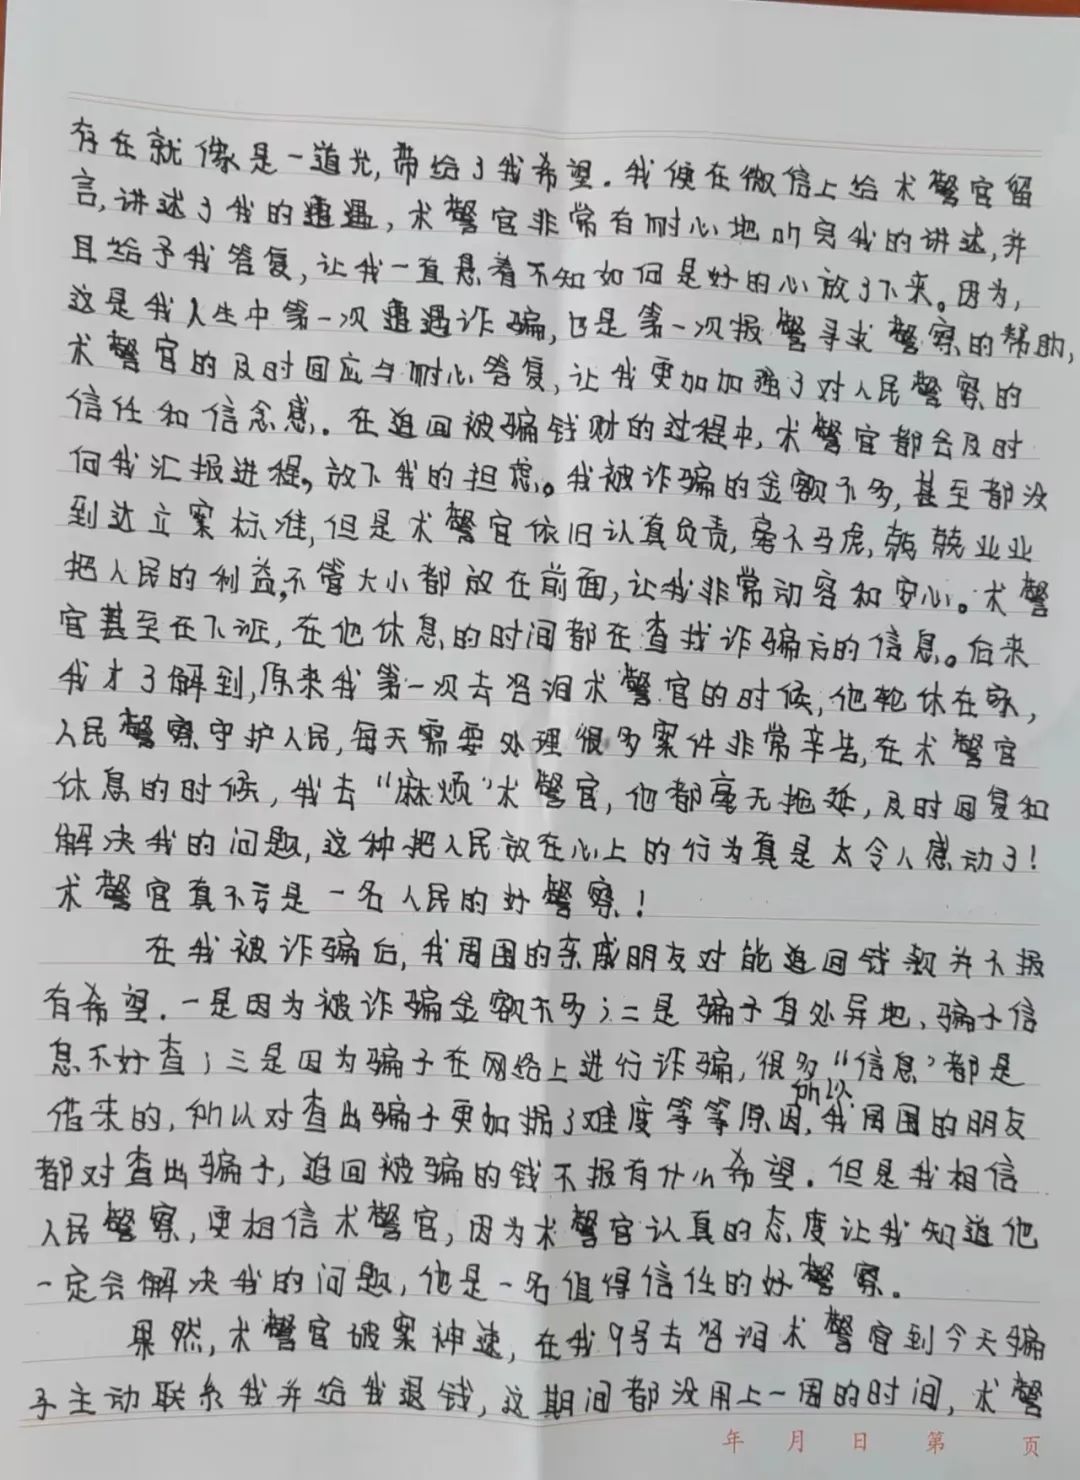 存在就像是一道光,带给了我希望.我便在微信上给术警官留
言,讲述了我的遭遇,术警官非常有耐心地听完我的讲述,并
且给予我答复,让我一直悬着不知如何是好的心放了下来。因为,
这是我人生中第一次遭遇诈骗,也是第一次报警寻求警察的帮助,
术警官的及时回应与耐心答复,让我更加加强了对人民警察的
信任和信念感.在追回被骗钱财的过程中,术警官都会及时
向我汇报进程,放下我的担虑。我被诈骗的金额不多,甚至都没
到达立案标准,但是术警官依旧认真负责,毫不马虎,兢兢业业
把人民的利益,不管大小都放在前面,让我非常动容和安心。术警
官甚至在下班,在他休息的时间都在查找诈骗方的信息。后来
我才了解到,原来我第一次去咨询术警官的时候,他轮休在家,
人民警察守护人民,每天需要处理很多案件非常辛苦,在术警官
休息的时候,我去“麻烦”术警官,他都毫无拖延,及时回复和
解决我的问题,这种把人民放在心上的行为真是太令人感动了!
术警官真不亏是一名人民的好警察!
在我被诈骗后,我周围的亲戚朋友对能追回钱款并不报
有希望.一是因为被诈骗金额不多;二是骗子身处异地、骗子信
息不好查;三是因为骗子在网络上进行诈骗,很多“信息”都是
借来的,所以对查出骗子更加据了难度等等原因,所以我周围的朋友
都对查出骗子,追回被骗的钱不报有什么希望.但是我相信
人民警察,更相信术警官,因为术警官认真的态度让我知道他
一定会解决我的问题,他是一名值得信任的好警察.
果然,术警官破案神速,在我9号去咨询术警官到今天骗
子主动联系我并给我退钱,这期间都没用上一周的时间,术警
年 月 日 第 页